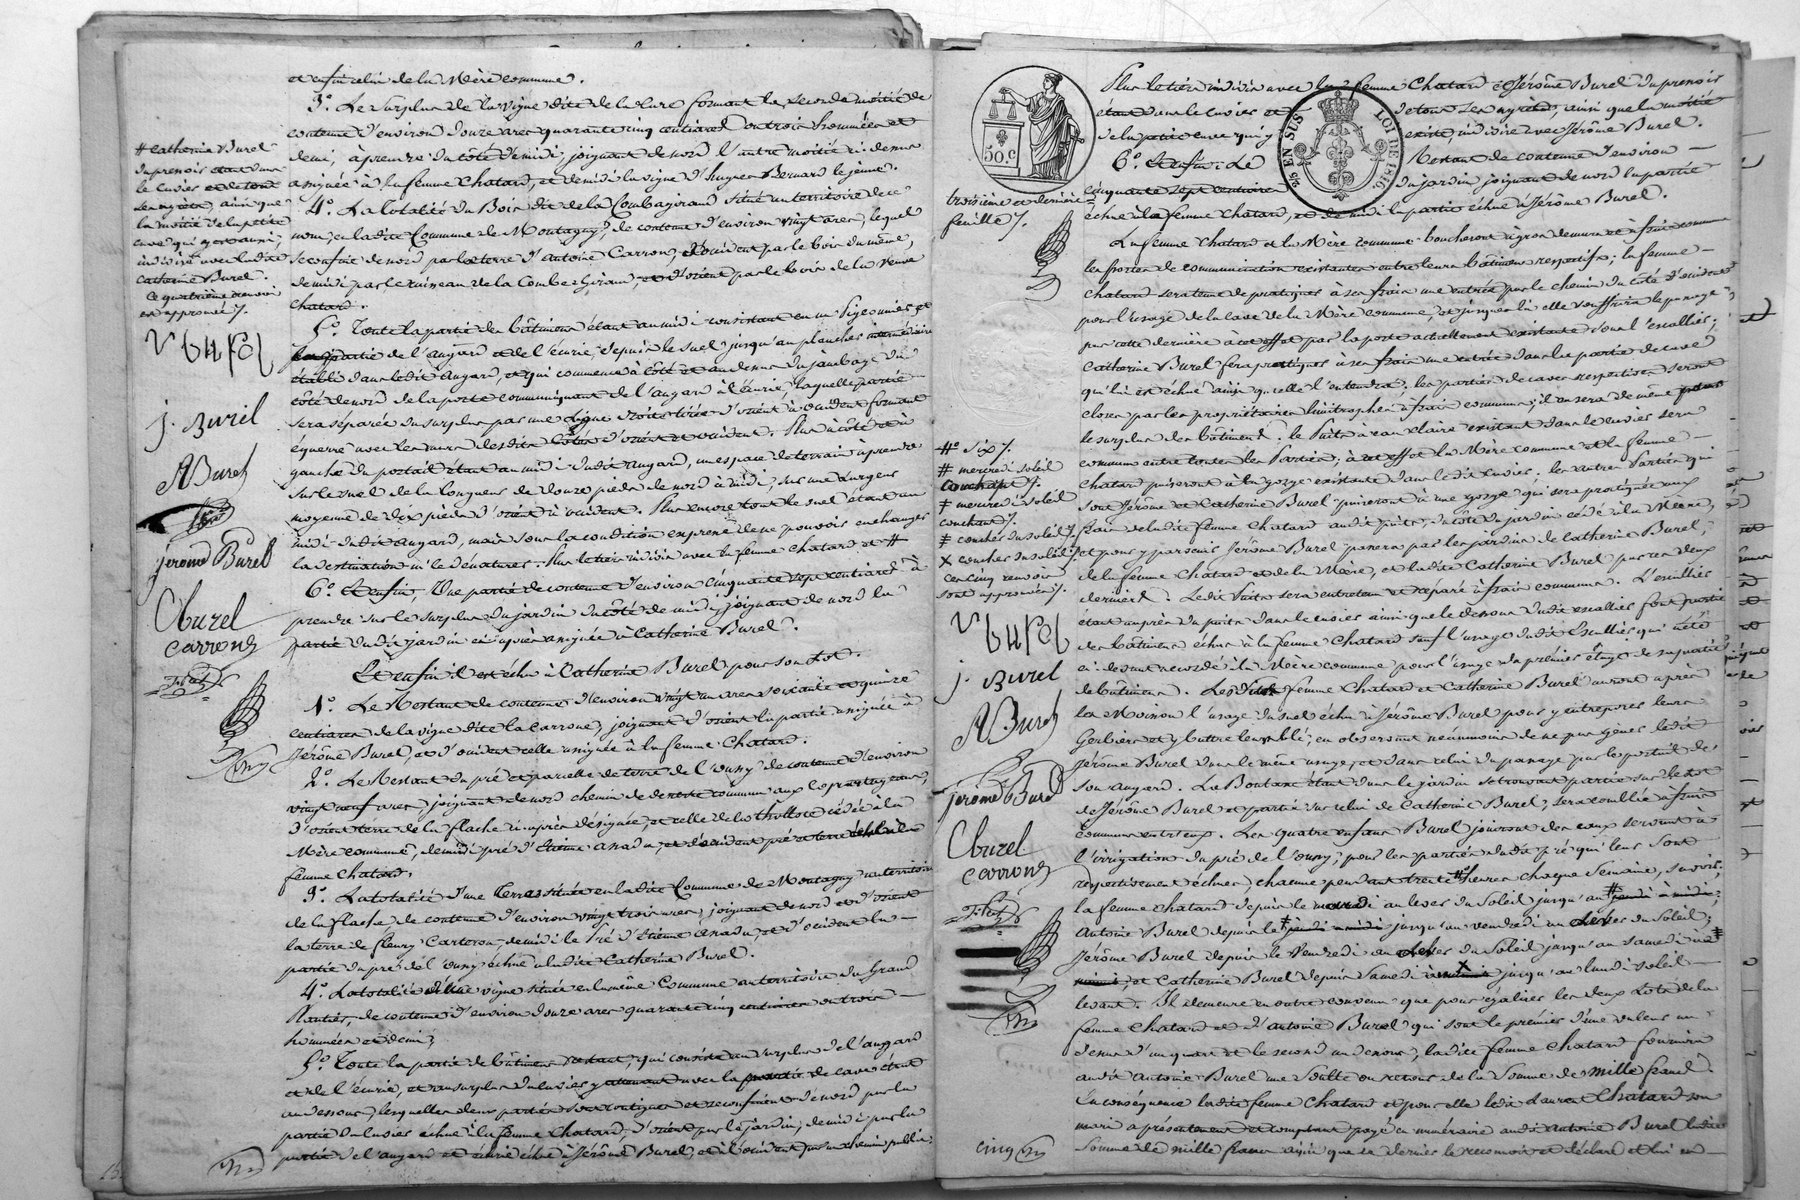 et enfin celui de la Mère commune.
3.° Le surplus de la vigne dite de la Cure formant la seconde moitié de
contenue d'environ douze ares quarante cinq centiares ou trois hommées et
demi, à prendre du côté de midi, joignant de nord l'autre moitié ci-dessus
assignée à la femme Chatard, et de midi la vigne d'hugues Bernard le jeune.
4.° La totalité du Bois dit de la Combagiraud situé au territoire de ce
nom, en la dite Commune de Montagny, de contenue d'environ vingt ares, lequel
se confine de nord par la terre d'antoine Carron, d'occident par le bois du même,
de midi par le ruisseau de la Combe Giraud, et d'orient par le bois de la veuve
Chatard.
5.° Toute la partie des bâtimens étant au midi consistant en un Pigeonnier et
la partie de l'angard et de l'écurie, depuis le suel jusqu'au planches
établi dans le dit angard, et qui commence à côté et au dessus du jambage du
côté de nord de la porte communiquant de l'angard à l'écurie, laquelle partie
sera séparée du surplus par une ligne droite tirée d'orient à occident formant
équerre avec les murs des dits côtés d'orient et occident. Plus à côté et à
gauche du portail étant au midi du dit angard, un espace de terrain à prendre
sur le suel de la longueur de douze pieds de nord à midi, sur une largeur
moyenne de dix pieds d'orient à occident. Plus encore tout le suel étant au
midi du dit angard, mais sous la condition expresse de ne pouvoir en changer
la destination ni le dénaturer. Plus le tiers indivis avec la femme Chatard et #
6.° Et enfin, Une partie de contenue d'environ cinquante sept centiares à
prendre sur le surplus du jardin du côté de midi, joignant de nord la
partie du dit jardin ci-après assignée à Catherine Burel.
Et enfin il est échu à Catherine Burel pour son Lot.
1.° Le Restant de contenue d'environ vingt un ares soixante et quinze
centiares de la vigne dite la Carroue, joignant d'orient la partie assignée à
Jérôme Burel, et d'occident celle assignée à la femme Chatard.
2.° Le Restant du pré et parcelle de terre de l'ouny de contenue d'environ
vingt neuf ares, joignant de nord chemin de desserte commun aux copartageans,
d'orient terre de la flache ci-après désignée, et celle de la thollose cédée à la
Mère commune, de midi pré d'Etienne anadu, et d'occident pré et terre échus à la
femme Chatard.
3.° La totalité d'une Terre située en la dite Commune de Montagny au territoire
de la flache, de contenue d'environ vingt trois ares, joignant de nord et d'orient
la terre de fleury Carteron, de midi le Pré d'Etienne anadu, et d'occident la
partie du pré de l'ouny échue à la dite Catherine Burel.
4.° La totalité d'une vigne située en la même Commune au territoire du Grand
Plantier, de contenue d'environ douze ares quarante cinq centiares ou trois
hommées et demi;
5.° Toute la partie de bâtimens restant, qui consiste au surplus de l'angard
et de l'écurie, et au surplus du cuvier y attenant avec la partie de cave étant
au dessous, lesquelles deux parties sont contigues et se confinent de nord par la
partie du cuvier échue à la femme Chatard, d'orient par le jardin, de midi par la
partie de l'angard et écurie échue à Jérôme Burel, et d'occident par un chemin public
# Catherine Burel
du pressoir étant dans
le cuvier et de tout
ses agrès, ainsi que
la moitié de la petite
cuve qui y est aussi,
indivise avec la dite
Catherine Burel.
Ce quatrième renvoi
est approuvé /.
V burel
j. Burel
A Burel
jerome Burel
C burel
carron
troisième et dernière
feuille /.
50.C
2/5 EN SUS
LOI DE 1816
Plus le tiers indivis avec la femme Chatard et Jérôme Burel du pressoir
étant dans le cuvier et de tout ses agrès, ainsi que la moitié
de la petite cuve qui y existe, indivise avec Jérôme Burel.
6.° Et enfin: Le Restant de contenue d'environ
cinquante sept centiares du jardin joignant de nord la partie
échue à la femme Chatard, et de midi la partie échue à Jérôme Burel.
La femme Chatard et la Mère commune boucheront à gros de mur et à frais commun
les portes de communication existantes entre leurs bâtimens respectifs; la femme
Chatard sera tenue de pratiquer à ses frais une entrée par le chemin du côté d'occident
pour l'usage de la cave de la Mère commune, et jusques là elle souffrira le passage
par cette dernière à cet effet par la porte actuellement existante sous l'escallier;
Catherine Burel fera pratiquer à ses frais une entrée dans la partie de cave
qui lui est échue ainsi qu'elle l'entendra. Les parties de caves respectives seront
closes par les propriétaires limitrophes à frais communs; il en sera de même pour
le surplus des bâtimens. Le Puits à eau claire existant dans le cuvier sera
commun entre toutes les Parties; à cet effet la Mère commune et la femme
Chatard puiseront à la gorge existante dans le dit cuvier; les autres Parties qui
sont Jérôme et Catherine Burel puiseront à une gorge qui sera pratiquée aux
frais de la dite femme Chatard au dit puits, du côté du jardin cédé à la Mère,
et pour y parvenir Jérôme Burel passera par les jardins de Catherine Burel,
de la femme Chatard et de la Mère, et la dite Catherine Burel par ces deux
derniers. Le dit Puits sera entretenu et réparé à frais communs. L'escallier
étant auprès du puits dans le cuvier ainsi que le dessous du dit escallier font partie
des bâtimens échus à la femme Chatard sauf l'usage du dit Escallier qui a été
ci-dessus accordé à la Mère commune pour l'usage du premier étage de sa partie
de bâtimens. Les dites femme Chatard et Catherine Burel auront après
les Moissons l'usage du suel échu à Jérôme Burel pour y entreposer leurs
Gerbiers et y battre leur blé; en observant néanmoins de ne pas gêner le dit
Jérôme Burel dans le même usage, et dans celui du passage par le portail de
son angard. La Boutasse étant dans le jardin se trouvant partie sur le lot
de Jérôme Burel et partie sur celui de Catherine Burel, sera comblée à frais
communs entr'eux. Les quatre enfans Burel jouiront des eaux servant à
l'irrigation du pré de l'ouny, pour les parties du dit pré qui leur sont
respectivement échues, chacune pendant trente # heures chaque Semaine, savoir:
la femme Chatard depuis le mardi au lever du Soleil jusqu'au # jeudi à midi;
Antoine Burel depuis le # jeudi à midi jusqu'au vendredi au lever du Soleil;
Jérôme Burel depuis le Vendredi au lever du Soleil jusqu'au samedi à #
midi; et Catherine Burel depuis Samedi à midi X jusqu'au lundi soleil
levant. Il demeure en outre convenu que pour égaliser les deux Lots de la
femme Chatard et d'antoine Burel qui sont le premier d'une valeur au
dessus d'un quart et le second au dessous, la dite femme Chatard fournira
au dit Antoine Burel une Soulte ou retour de la Somme de mille francs.
En conséquence la dite femme Chatard et pour elle le dit Laurent Chatard son
mari a présentement et comptant payé en numéraire au dit Antoine Burel la dite
Somme de mille francs ainsi que ce dernier le reconnoit et déclare et lui en
#° Six /.
# mercredi soleil
couchant /.
# mercredi soleil
couchant /.
# coucher du soleil /.
X coucher du soleil /.
ces cinq renvois
sont approuvés /.
V burel
j. Burel
A Burel
jerome Burel
C burel
carron
cinq